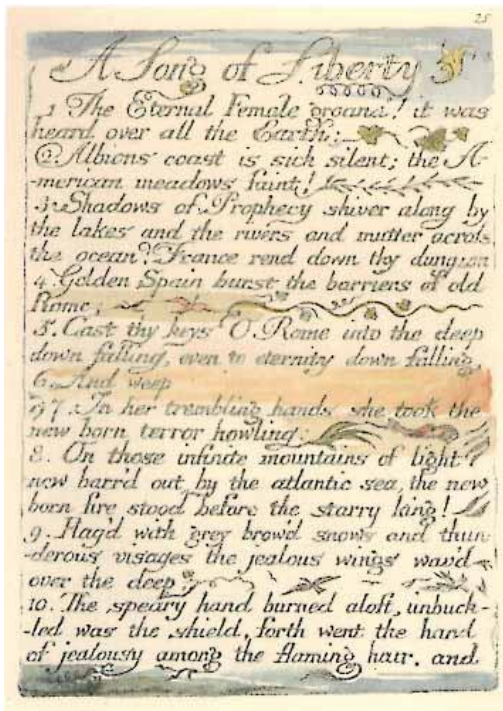 25
A Song of Liberty
1 The Eternal Female groand! it was
heard over all the Earth:
2. Albions coast is sick silent; the A-
-merican meadows faint!
3. Shadows of Prophecy shiver along by
the lakes and the rivers and mutter across
the ocean? France rend down thy dungeon
4. Golden Spain burst the barriers of old
Rome;
5. Cast thy keys O Rome into the deep
down falling, even to eternity down falling,
6. And weep
7. In her trembling hands she took the
new born terror howling:
8. On those infinite mountains of light
now barr'd out by the atlantic sea, the new
born fire stood before the starry king!
9. Flag'd with grey brow'd snows and thun-
-derous visages the jealous wings wav'd
over the deep
10. The speary hand burned aloft, unbuck-
-led was the shield, forth went the hand
of jealousy among the flaming hair, and